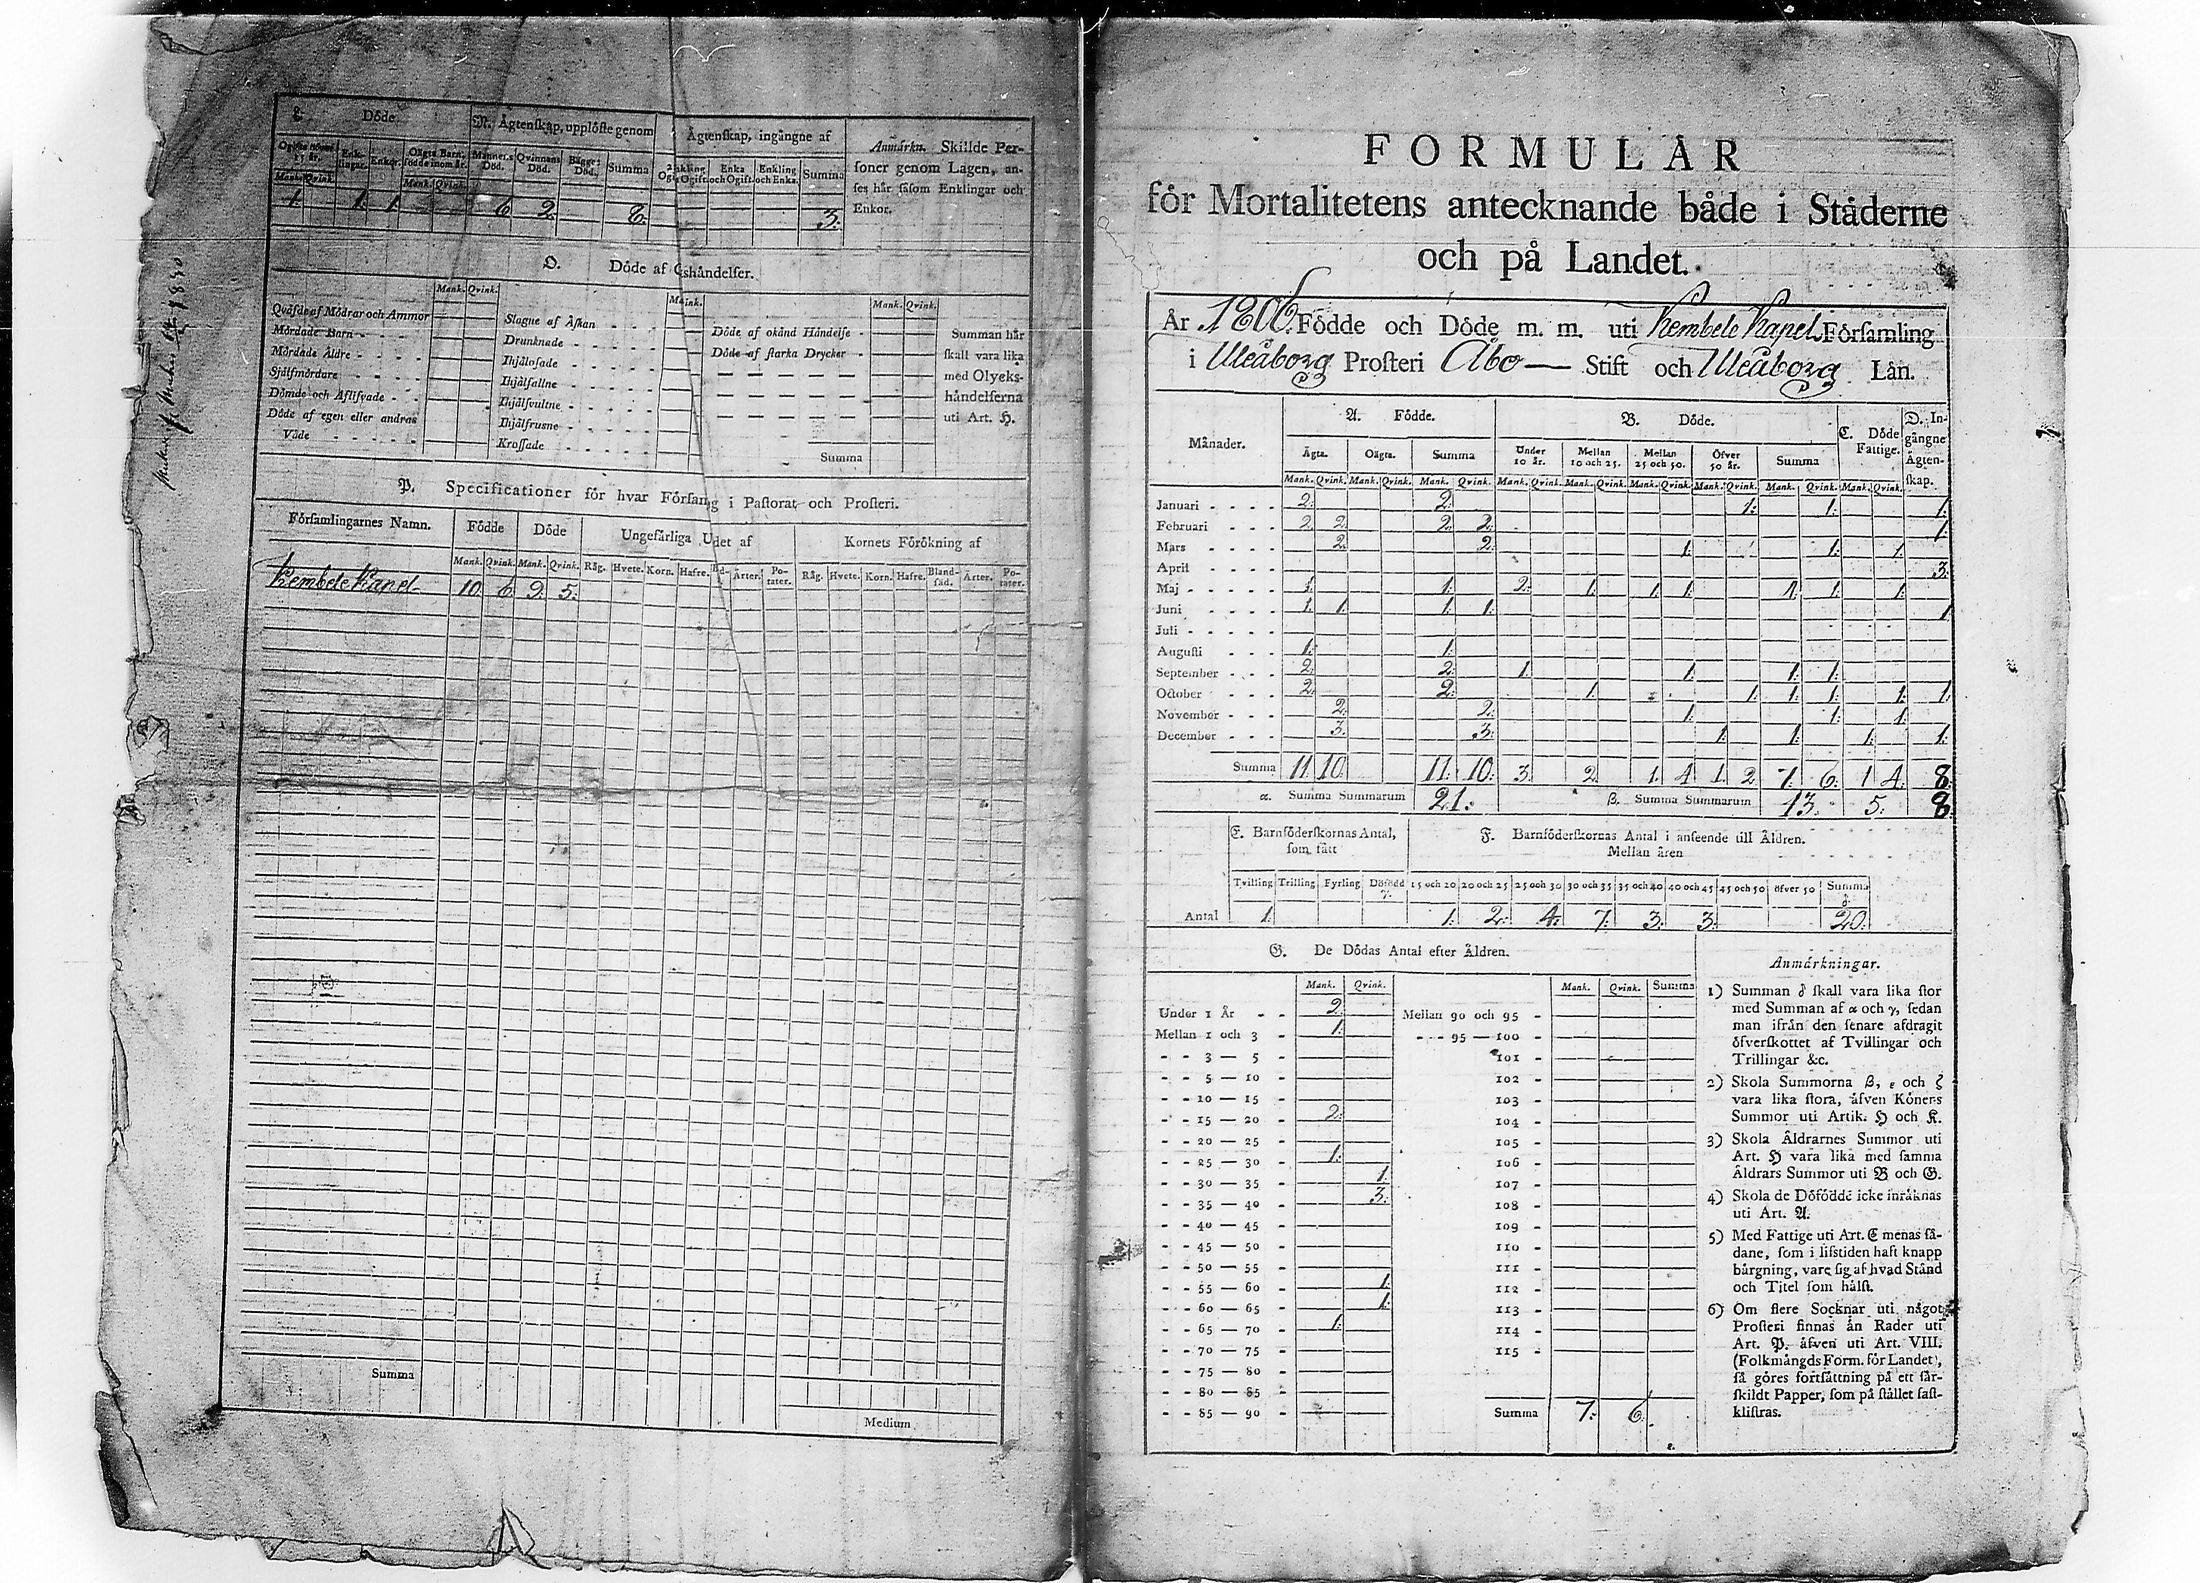 L. Döde
N. Ägtenskap, upplöste genom
Ägtenskap, ingångne af
Anmärkn. Skillde Personer genom Lagen, anses här såsom Enklingar och Enkor.
Ogifte öfver 15 år. Enklingar. Enkor. Oägta Barn, födde inom år. Mannens Död. Qvinnans Död. Bägges Död. Summa
Enka och Ogift. Enkling och Enka. Summa
Mank. Qvink. Mank. Qvink.
1. 1. 1. 6. 2. 8. 3.
O. Döde af
shändelser.
Mank. Qvink.
Mank. Qvink.
Qväfde af Mödrar och Ammor
Mördade Barn
Mördade Äldre
Sjelfmördare
Dömde och Aflifvade
Döde af egen eller andras
Våde
Slagne af Åskan
Drunknade
Ihjälosade
Ihjälfallne
Ihjälsvultne
Ihjälfrusne
Krossade
Döde af okänd Händelse
Döde af starka Drycker
Summa
Summan här
skall vara lika
med Olyckshändelserna
uti Art. H.
P. Specificationer för hvar Församling i Pastorat och Prosteri.
Församlingarnes Namn. Födde Döde Ungefärliga Kornets Förökning af
Mank. Qvink. Mank. Qvink. Råg. Hvete. Korn. Hafre. Ärter. Potater. Råg. Hvete. Korn. Hafre. Blandsäd. Ärter. Potater.
Kembele Kapel 10. 6. 9. 5.
Summa
Medium
FORMULÄR
för Mortalitetens antecknande både i Städerne
och på Landet.
År 1806. Födde och Döde m. m. uti Kembele Kapel Församling
i Uleåborg Prosteri Åbo — Stift och Uleåborg Län.
Månader. A. Födde. B. Döde. C. Döde Fattige. D. Ingångne Ägtenskap.
Ägta. Oägta. Summa Under 10 år. Mellan 10 och 25. Mellan 25 och 50. Öfver 50 år. Summa
Mank. Qvink. Mank. Qvink. Mank. Qvink. Mank. Qvink. Mank. Qvink. Mank. Qvink. Mank. Qvink. Mank. Qvink. Mank. Qvink.
Januari 2. 2. 1. 1. 1.
Februari 2. 2. 2. 2. 1.
Mars 2. 2. 1. 1. 1.
April 3.
Maj 1. 1. 2. 1. 1. 1. 4. 1. 1.
Juni 1. 1. 1. 1. 1.
Juli
Augusti 1. 1.
September 2. 2. 1. 1. 1. 1.
October 2. 2. 1. 1. 1. 1. 1. 1.
November 2. 2. 1. 1. 1.
December 3. 3. 1. 1. 1. 1.
Summa 11 10. 11. 10. 3. 2. 1. 4. 1. 2. 7. 6. 1 4. 8.
α. Summa Summarum 21. β. Summa Summarum 13. 5. 8.
E. Barnföderskornas Antal, som fått
F. Barnföderskornas Antal i anseende till Åldren.
Mellan åren
Tvilling Trilling Fyrling Dödfödd γ. 15 och 20 20 och 25 25 och 30 30 och 35 35 och 40 40 och 45 45 och 50 öfver 50 Summa δ.
Antal 1. 1. 2. 4. 7. 3. 3. 20.
G. De Dödas Antal efter Åldren.
Mank. Qvink. Mank. Qvink. Summa
Under 1 År 2. Mellan 90 och 95
Mellan 1 och 3 1. 95 — 100
3 — 5 101
5 — 10 102
10 — 15 103
15 — 20 2. 104
20 — 25 105
25 — 30 1. 106
30 — 35 1. 107
35 — 40 3. 108
40 — 45 109
45 — 50 110
50 — 55 111
55 — 60 1. 112
60 — 65 1. 113
65 — 70 1. 114
70 — 75 115
75 — 80
80 — 85
85 — 90 Summa 7. 6.
Anmärkningar.
1) Summan δ skall vara lika stor
med Summan af α och γ, sedan
man ifrån den senare afdragit
öfverskottet af Tvillingar och
Trillingar &c.
2) Skola Summorna β, ε och ζ
vara lika stora, äfven Könens
Summor uti Artik. H och K.
3) Skola Åldrarnes Summor uti
Art. H vara lika med samma
Åldrars Summor uti B och G.
4) Skola de Döfödde icke inräknas
uti Art. A.
5) Med Fattige uti Art. C menas sådane, som i lifstiden haft knapp
bärgning, vare sig af hvad Stånd
och Titel som hälst.
6) Om flere Socknar uti något
Prosteri finnas än Rader uti
Art. P. äfven uti Art. VIII.
(Folkmängds Form. för Landet),
så göres fortsättning på ett särskildt Papper, som på stället fastklistras.